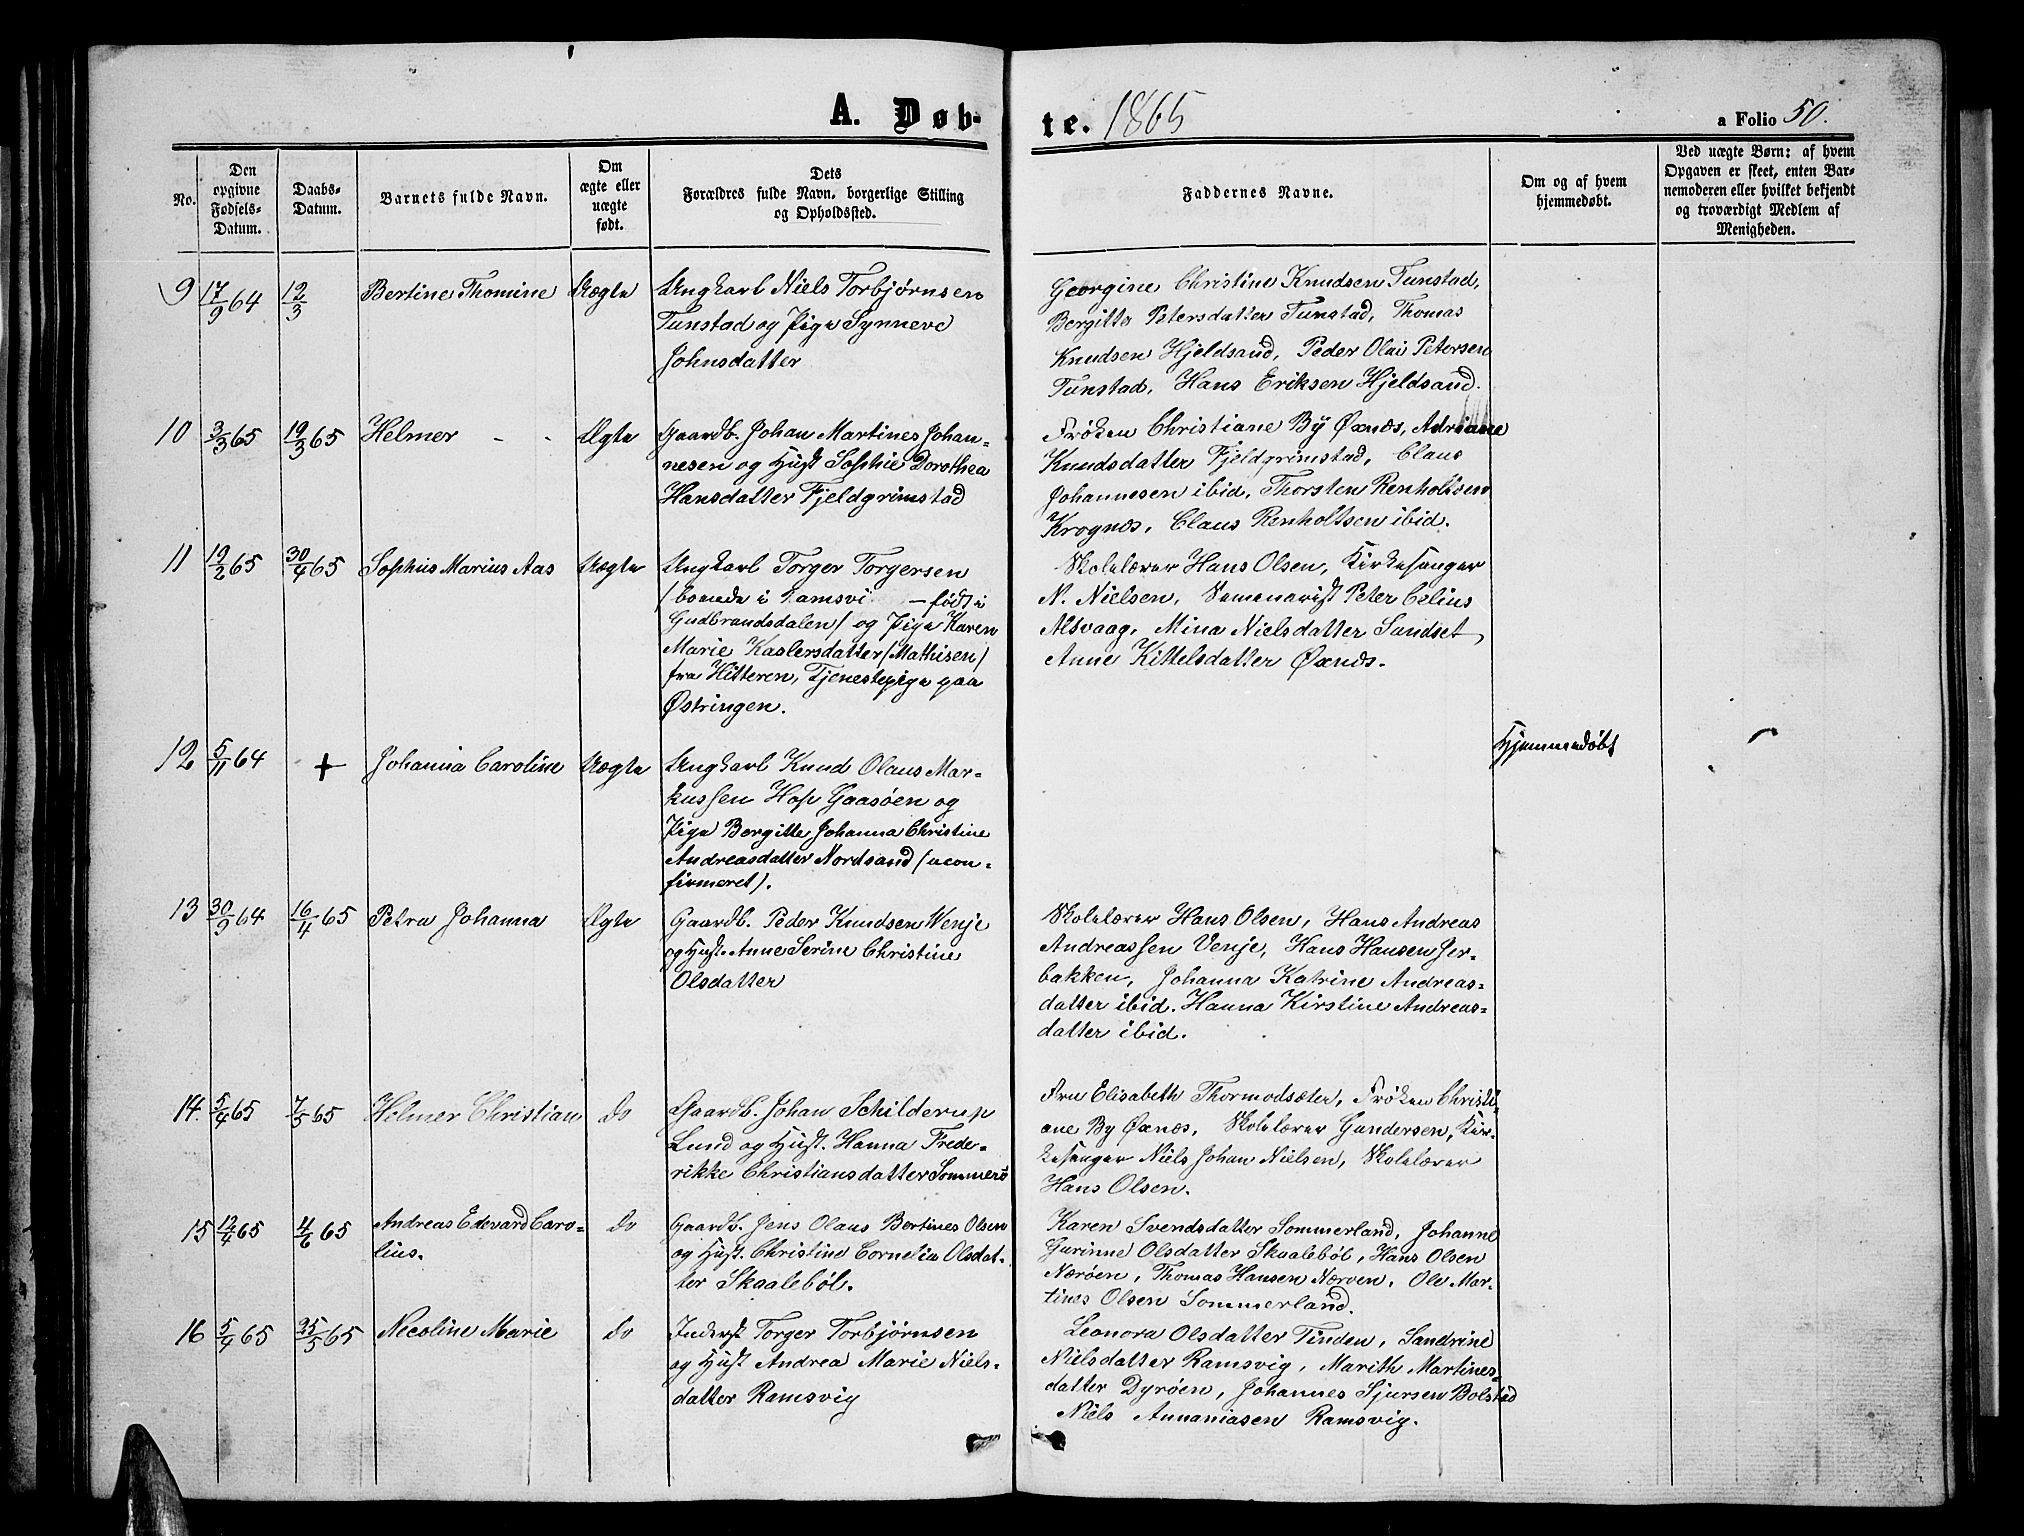 A. Døb-
te. 1865
a Folio 50.
No.
Den
opgivne
Fødsels-
Datum.
Daabs-
Datum.
Barnets fulde Navn.
Om
ægte eller
uægte
født.
Dets
Forældres fulde Navn, borgerlige Stilling
og Opholdssted.
Faddernes Navne.
Om og af hvem
hjemmedøbt.
Ved uægte Børn: af hvem
Opgaven er skeet, enten Bar-
nemoderen eller hvilket bekjendt
og troværdigt Medlem af
Menigheden.
9 17/9 64 12/3 Bertine Thomine Uægte
Ungkarl Niels Torbjørnsen
Tunstad og Pige Synneve
Johnsdatter
Georgine Christine Knudsen Tunstad,
Bergitte Petersdatter Tunstad, Thomas
Knudsen Hjeldsand, Peder Olai Petersen
Tunstad, Hans Eriksen Hjeldsand.
10 3/3 65 19/3 65 Helmer - - Ægte
Gaardb. Johan Martines Johan-
nesen og Hust Sophie Dorothea
Hansdatter Fjeldgrimstad
Frøken Christiane By Øxnæs, Adriane
Knudsdatter Fjeldgrimstad, Claus
Johannesen ibid, Thorsten Renholtsen
Krognæs, Claus Renholtsen ibid.
11 19/2 65 30/4 65 Sophus Marius Aas Uægte
Ungkarl Torger Torgersen
/boende i Ramsvi — født i
Gudbrandsdalen/ og Pige Karen
Marie Kaslersdatter (Mathisen)
fra Hitteren, Tjenestepige paa
Østringen.
Skolelærer Hans Olsen, Kirkesanger
N. Nielsen, Semenarist Peter Celius
Alsvaag, Mina Nielsdatter Sandset,
Anne Kittelsdatter Øxnæs.
12 5/11 64 + Johanna Caroline Uægte
Ungkarl Knud Olaus Mar-
kussen Hos Gaasøen og
Pige Bergitte Johanna Christine
Andreasdatter Nordsand (ucon-
firmeret).
Hjemmedøbt
13 30/9 64 16/4 65 Petra Johanna Ægte
Gaardb. Peder Knudsen Wenje
og Hust. Anne Serine Christine
Olsdatter
Skolelærer Hans Olsen, Hans Andreas
Andreassen Venje, Hans Hansen Jer-
bakken, Johanna Katrine Andreas-
datter ibid. Hanna Kirstine Andreas-
datter ibid.
14. 5/4 65 7/5 65 Helmer Christian do
Gaardb. Johan Schilderup
Lund og Hust. Hanna Frede-
rikke Christiansdatter Sommerø
Fru Elisabeth Thormodsæter, Frøken Christi-
ane By Øxnæs, Skolelærer Gundersen, Kir-
kesanger Niels Johan Nielsen, Skolelærer
Hans Olsen.
15 12/4 65 4/6 65 Andreas Edevard Caro-
lius. do
Gaardb. Jens Olaus Bertines Olsen
og Hust. Christine Cornelia Olsdat-
ter Skaalebøl.
Karen Svendsdatter Sommerland, Johanne
Gurinne Olsdatter Skaalebøl, Hans Olsen
Nærøen, Thomas Hansen Nærven, Ole Mar-
tines Olsen Sommerland.
16 5/4 65 25/5 65 Necoline Marie do
Inderst Torger Torbjørnsen
og Hust Andrea Marie Niels-
datter Ramsvig
Leonora Olsdatter Tinden, Sandrine
Nielsdatter Ramsvig, Marith Martines-
datter Dyrøen, Johannes Sjursen Bolstad
Niels Annaniasen Ramsvig.